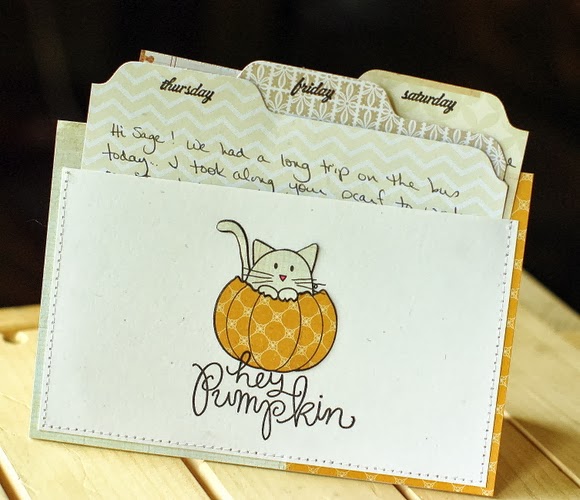 thursday
friday
saturday
Hi Sage! We had a long trip on the bus
today.. I took along your scarf to
hey
Pumpkin